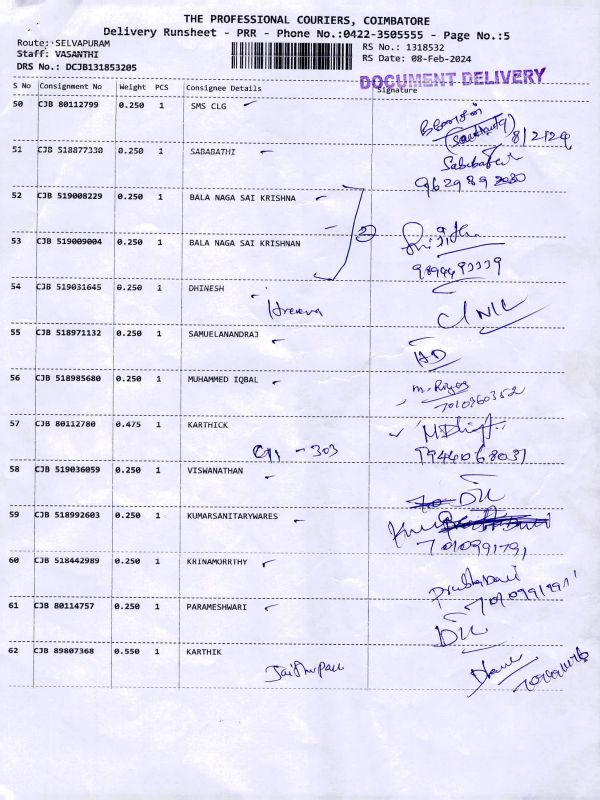 THE PROFESSIONAL COURIERS, COIMBATORE
Delivery Runsheet - PRR - Phone No.:0422-3505555 - Page No.:5
Route: SELVAPURAM
Staff: VASANTHI
DRS No.: DCJB131853205
RS No.: 1318532
RS Date: 08-Feb-2024
DOCUMENT DELIVERY
S No Consignment No Weight PCS Consignee Details Signature
50 CJB 80112799 0.250 1 SMS CLG
8/2/24
51 CJB 518877330 0.250 1 SABABATHI
52 CJB 519008229 0.250 1 BALA NAGA SAI KRISHNA
2
53 CJB 519009004 0.250 1 BALA NAGA SAI KRISHNAN
54 CJB 519031645 0.250 1 DHINESH
55 CJB 518971132 0.250 1 SAMUELANANDRAJ
56 CJB 518985680 0.250 1 MUHAMMED IQBAL
7010360352
57 CJB 80112780 0.475 1 KARTHICK
- 303
9944068031
58 CJB 519036059 0.250 1 VISWANATHAN
59 CJB 518992603 0.250 1 KUMARSANITARYWARES
7010991791
60 CJB 518442989 0.250 1 KRINAMORRTHY
61 CJB 80114757 0.250 1 PARAMESHWARI
62 CJB 89807368 0.550 1 KARTHIK